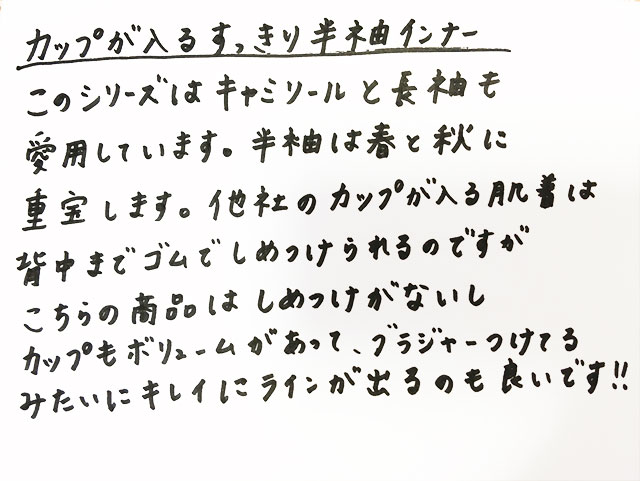 カップが入るすっきり半袖インナー
このシリーズはキャミソールと長袖も
愛用しています。半袖は春と秋に
重宝します。他社のカップが入る肌着は
背中までゴムでしめつけられるのですが
こちらの商品はしめつけがないし
カップもボリュームがあって、ブラジャーつけてる
みたいにキレイにラインが出るのも良いです!!